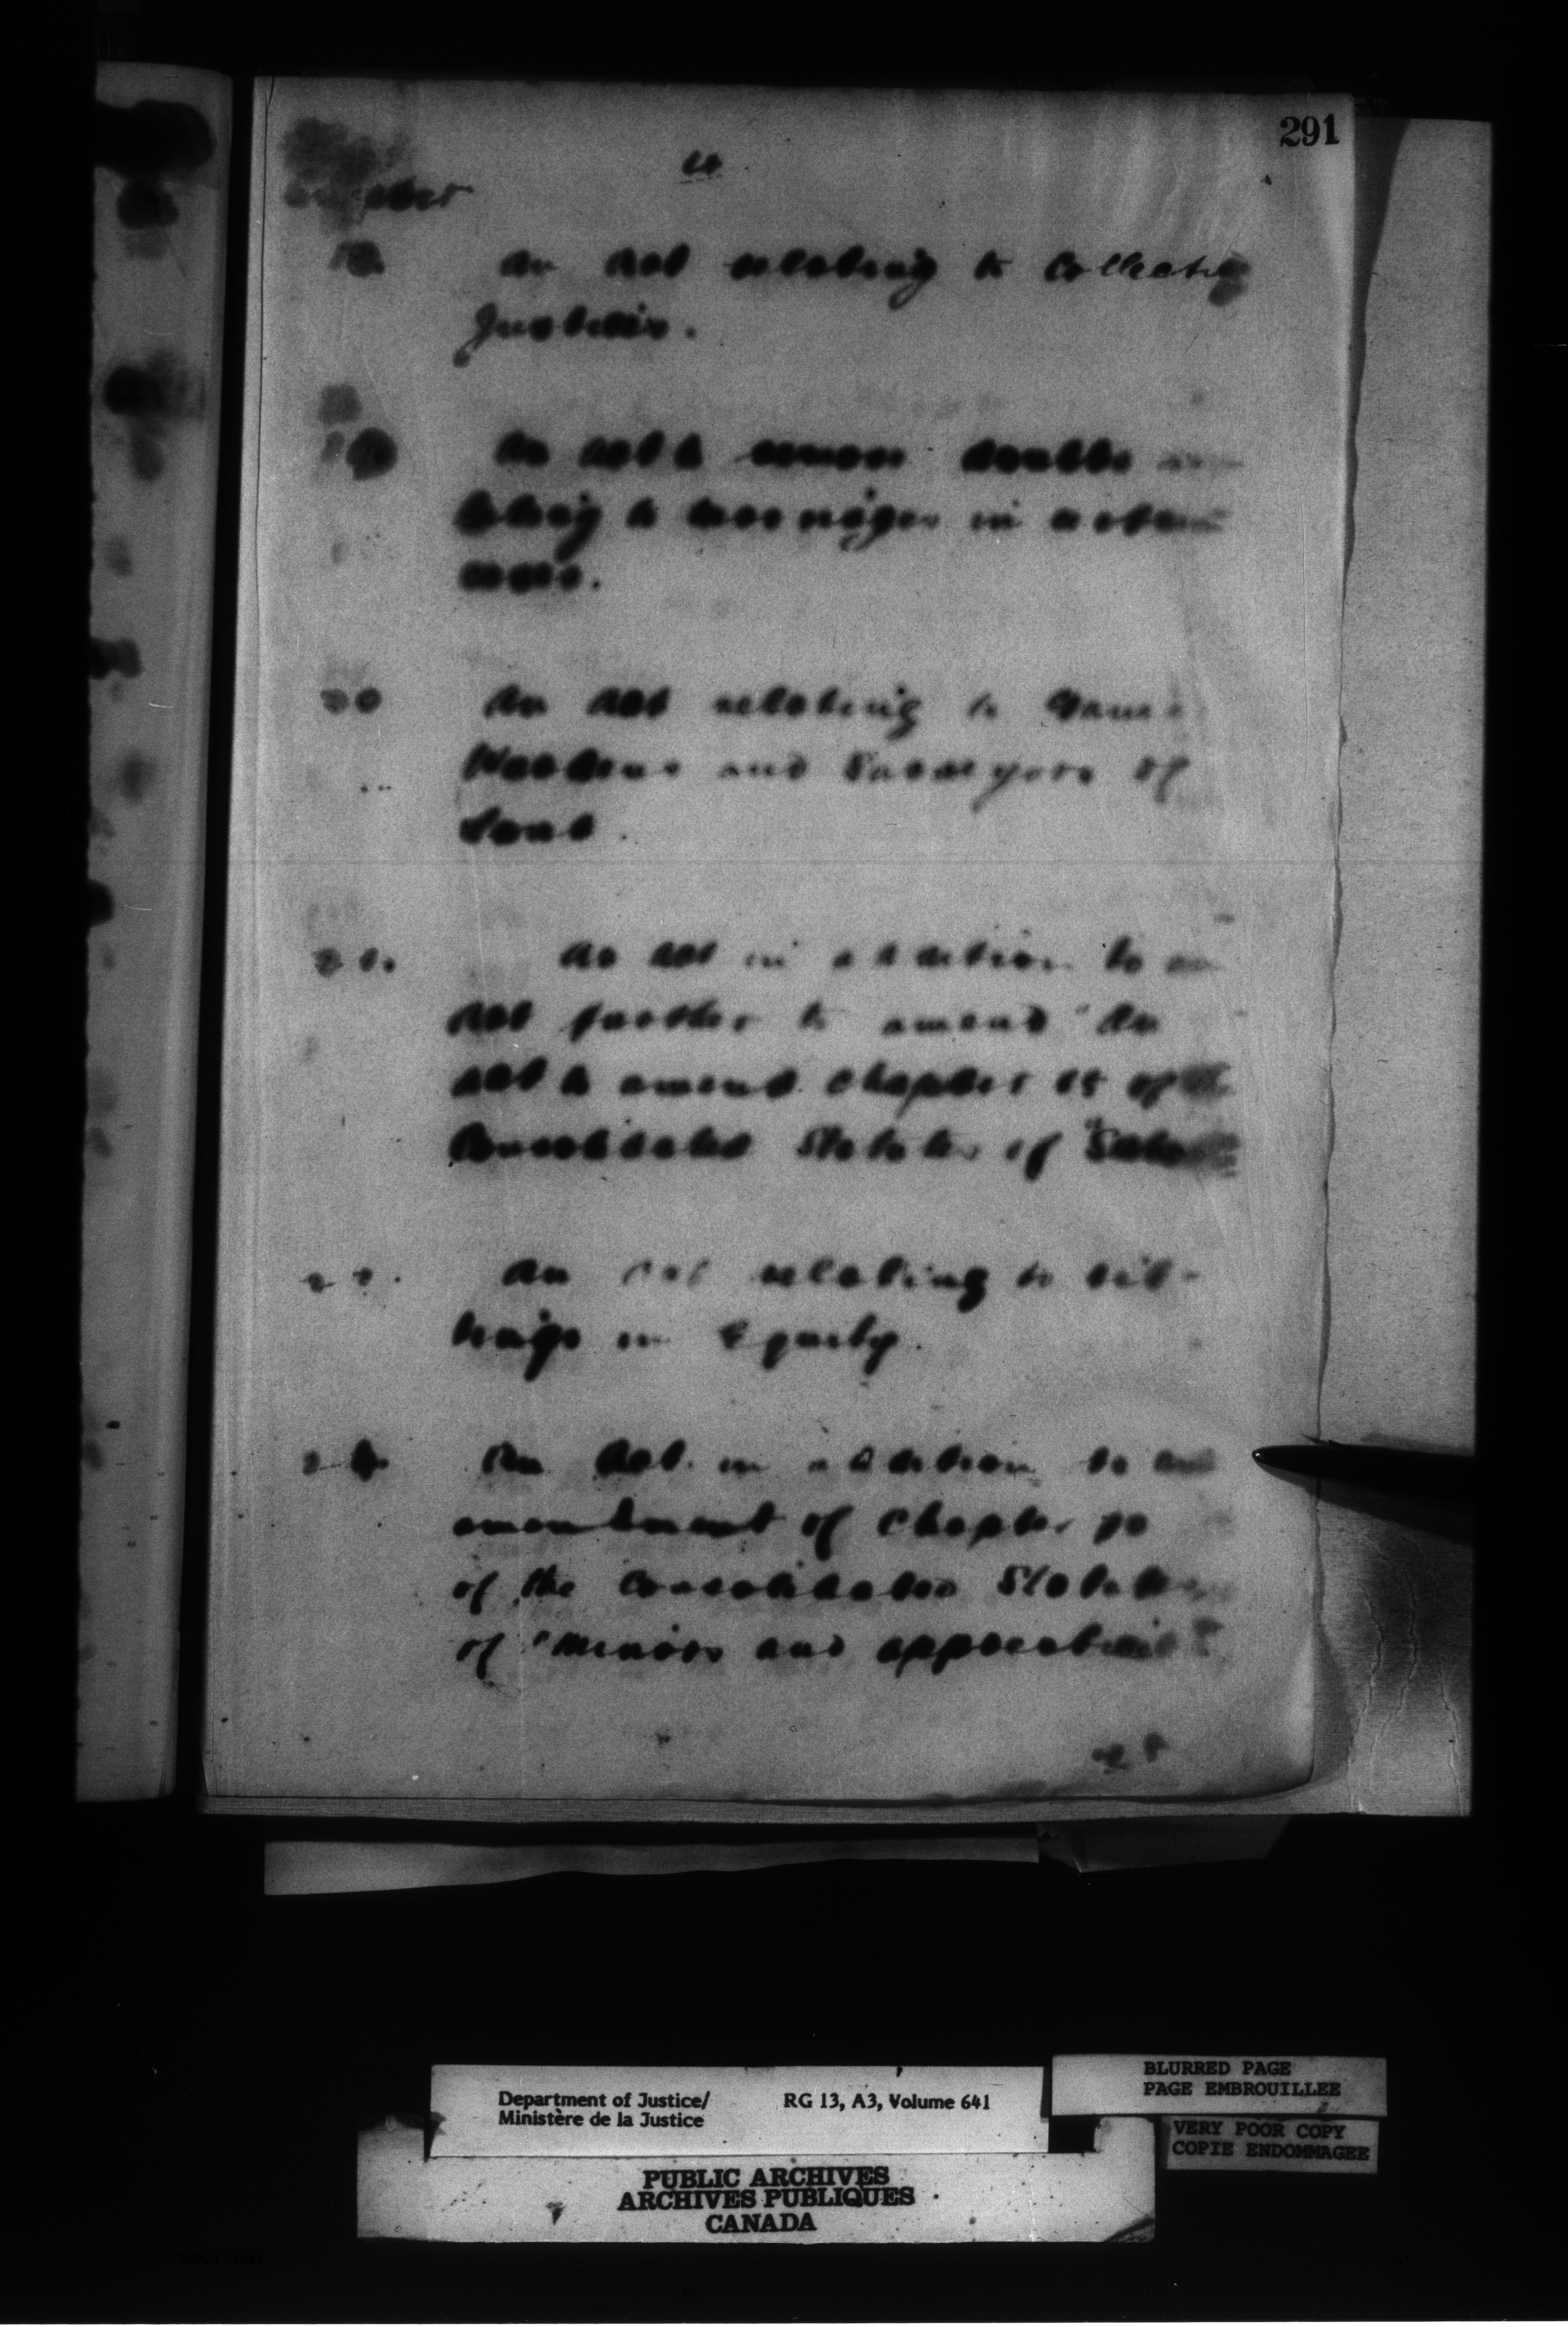 291
An Act relating to Collecting
Justices.
An Act to remove doubts re-
lating to marriages in certain
cases.
20 An Act relating to Game
Wardens and Surveyors of
Land.
An Act in addition to an
Act further to amend "An
Act to amend Chapter 65 of the
Consolidated Statutes of
22. An Act relating to sit-
tings in Equity.
An Act in addition to and
amendment of Chapter 70
of the Consolidated Statutes
of "Minors and apprentices".
Department of Justice/
Ministère de la Justice
RG 13, A3, Volume 641
BLURRED PAGE
PAGE EMBROUILLEE
VERY POOR COPY
COPIE ENDOMMAGEE
PUBLIC ARCHIVES
ARCHIVES PUBLIQUES
CANADA